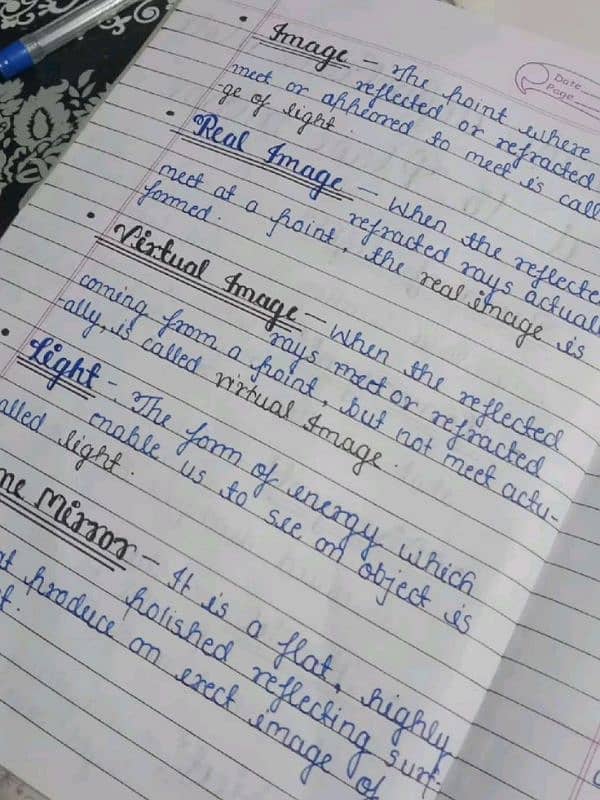 Date
Page
Image – The point where
reflected or refracted
meet or appeared to meet is call
ge of light.
Real Image – When the reflecte
refracted rays actuall
meet at a point, the real image is
formed.
Virtual Image – When the reflected
rays meet or refracted
coming from a point, but not meet actu-
-ally, is called virtual Image.
Light – The form of energy which
enable us to see an object is
alled light.
ne Mirror – It is a flat, highly
polished reflecting surf-
at produce an erect image of
t.